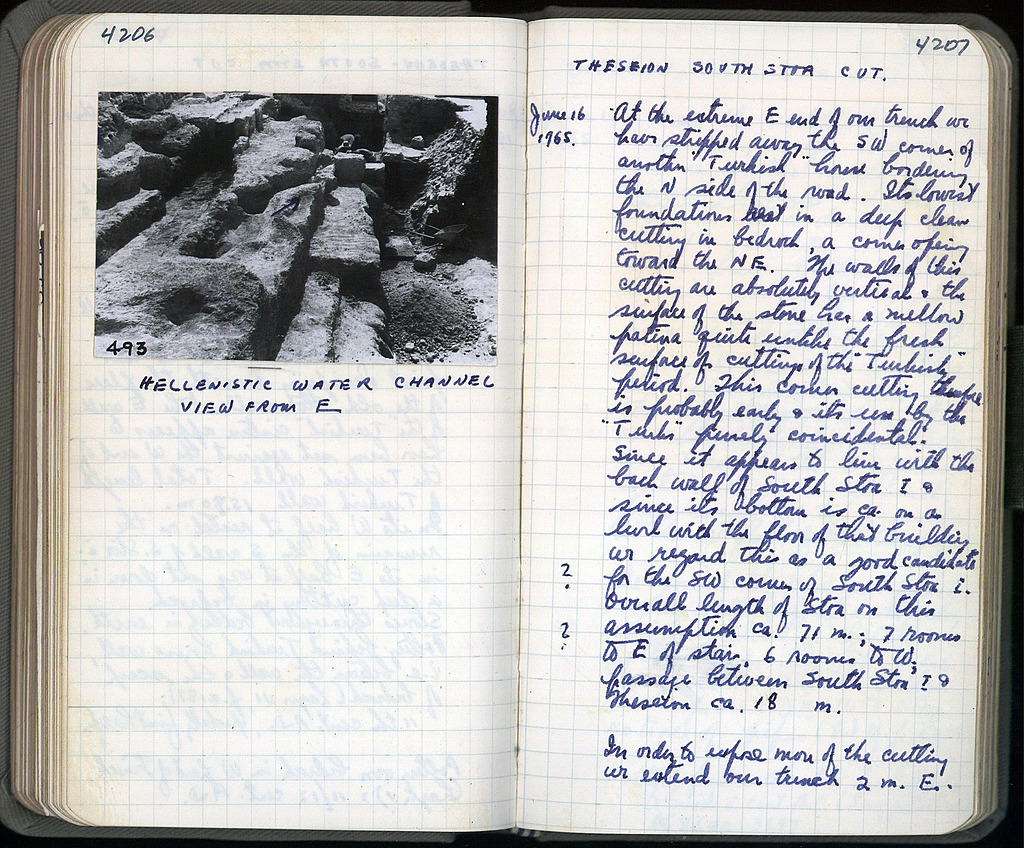 4206
493
HELLENISTIC WATER CHANNEL
VIEW FROM E
4207
THESEION SOUTH STOA CUT.
June 16
1965.
At the extreme E end of our trench we
have stripped away the SW corner of
another "Turkish" house bordering
the N side of the road. Its lowest
foundations rest in a deep clean
cutting in bedrock, a corner opening
toward the NE. The walls of this
cutting are absolutely vertical & the
surface of the stone has a mellow
patina quite unlike the fresh
surface of cuttings of the "Turkish"
period. This corner cutting therefore
is probably early & its use by the
"Turks" purely coincidental.
Since it appears to line with the
back wall of South Stoa I &
since its bottom is ca. on a
level with the floor of that building
we regard this as a good candidate
? for the SW corner of South Stoa I.
Overall length of Stoa on this
? assumption ca. 71 m.; 7 rooms
to E of stair, 6 rooms to W;
passage between South Stoa I &
Theseion ca. 18 m.
In order to expose more of the cutting
we extend our trench 2 m. E.